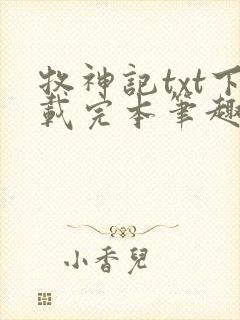 牧神記txt下
載完本筆趣
小香兒